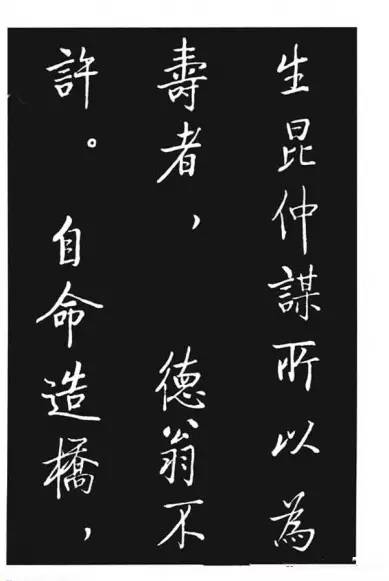 生昆仲謀所以為
壽者，德翁不
許。自命造橋，